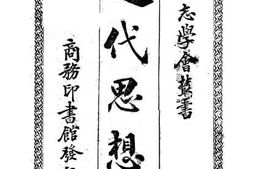 志學會叢書
代思想
商務印書館發